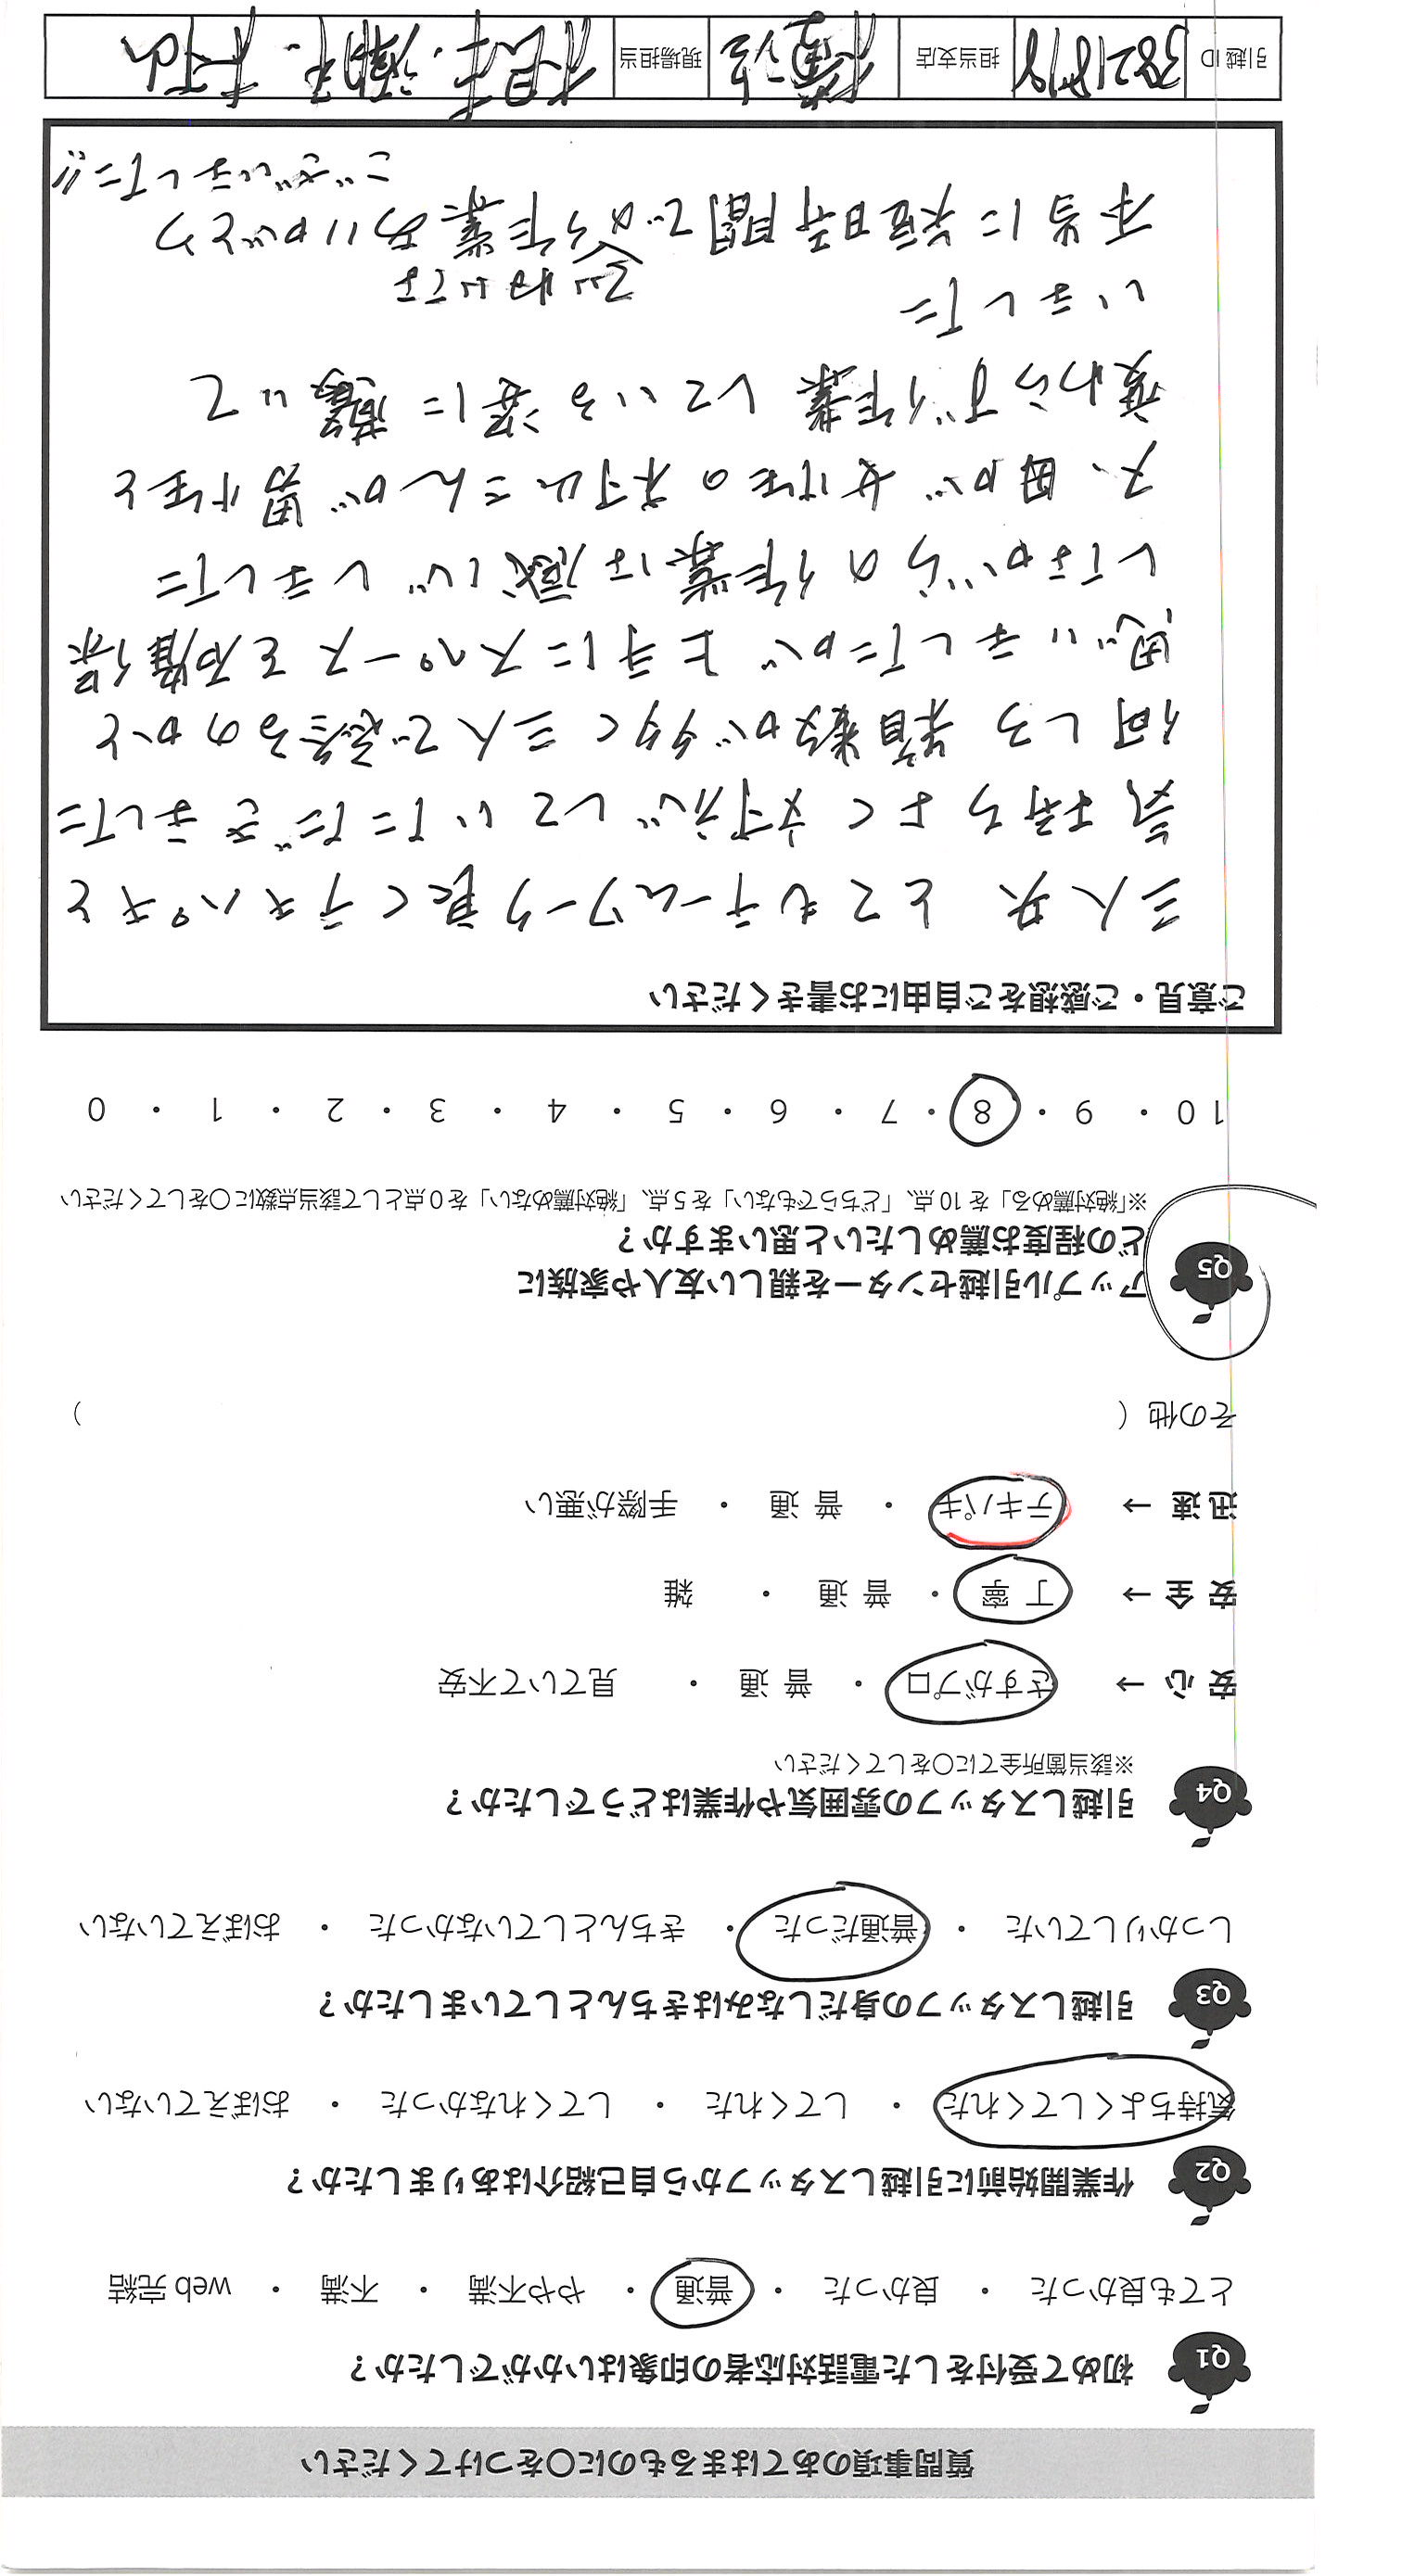 質問事項のあてはまるものに○をつけてください
Q1 初めて受付をした電話対応者の印象はいかがでしたか？
とても良かった ・ 良かった ・ 普通 ・ やや不満 ・ 不満 ・ web 完結
Q2 作業開始前に引越しスタッフから自己紹介はありましたか？
気持ちよくしてくれた ・ してくれた ・ してくれなかった ・ おぼえていない
Q3 引越しスタッフの身だしなみはきちんとしていましたか？
しっかりしていた ・ 普通だった ・ きちんとしていなかった ・ おぼえていない
Q4 引越しスタッフの雰囲気や作業はどうでしたか？
※該当箇所全てに○をしてください
安 心 → さすがプロ ・ 普 通 ・ 見ていて不安
安 全 → 丁 寧 ・ 普 通 ・ 雑
迅 速 → テキパキ ・ 普 通 ・ 手際が悪い
その他 （ ）
Q5 アップル引越センターを親しい友人や家族に
どの程度お薦めしたいと思いますか？
※「絶対薦める」を 10 点、「どちらでもない」を 5 点、「絶対薦めない」を 0 点として該当点数に○をしてください
10 ・ 9 ・ 8 ・ 7 ・ 6 ・ 5 ・ 4 ・ 3 ・ 2 ・ 1 ・ 0
ご意見・ご感想をご自由にお書きください
三人共 とてもチームワーク良くテキパキと
気持ちよく対応していただきました
何しろ 箱数が多く三人で出来るのかと
思いましたが 上手にスペースを確保
しながらの作業は感心しました
又、 女性の 村山さんが 男性と
変わらず作業 している姿に 驚いて
いました
本当に短時間での 作業ありがとう
ございました!!
引越 ID 38218718 担当支店 横浜 現場担当 村山